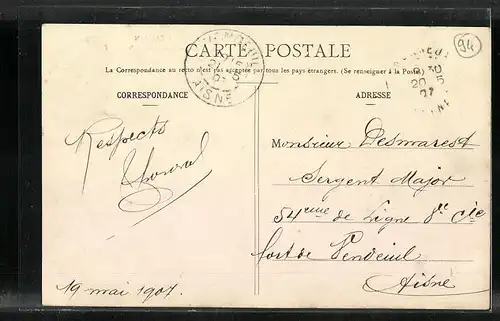 94
CARTE POSTALE
La Correspondance au recto n'est pas acceptée par tous les pays étrangers. (Se renseigner à la Poste.)
CORRESPONDANCE
ADRESSE
AISNE
Respects
19 mai 1907.
Monsieur Desmarest
Sergent Major
54eme de Ligne 8e Cie
fort de Vendeuil
Aisne